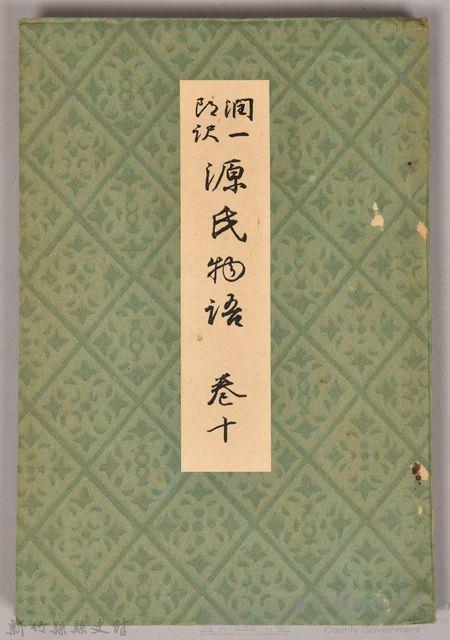 潤一
郎訳
源氏物語 巻十
新竹縣縣史館
County Government